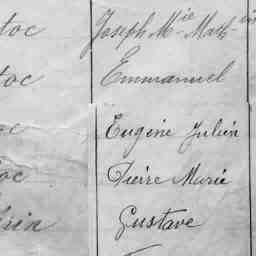 toc Joseph M^ie Math^in
toc Emmanuel
oc Eugène Julien
oc Pierre Marie
rin Gustave